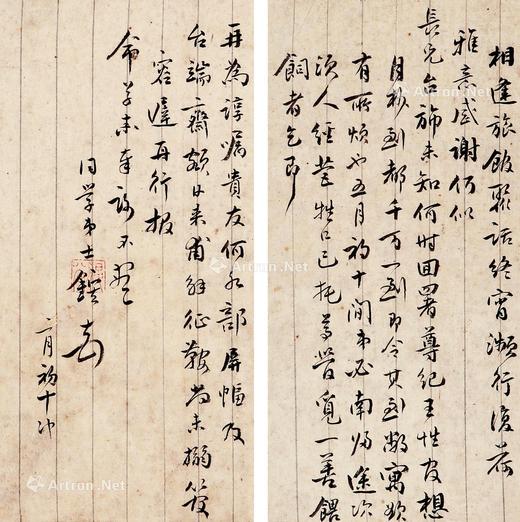 相逢旅飯聚話終宵瀕行復荷
雅意感謝何似
長兄台旆未知何時回署尊紀王姓想
月杪到都千万一到即令其到敝寓
有所煩也五月初十間弟必南歸途次
須人經營牲口已托尊管覓一善餵
飼者乞即
再為諄囑貴友何水部屏幅及
台端齋額日來甫解征鞍尚未搦
容遲再行報
命草未奉謝不
同學弟士
二月初十
Artron.Net
Artron.Net